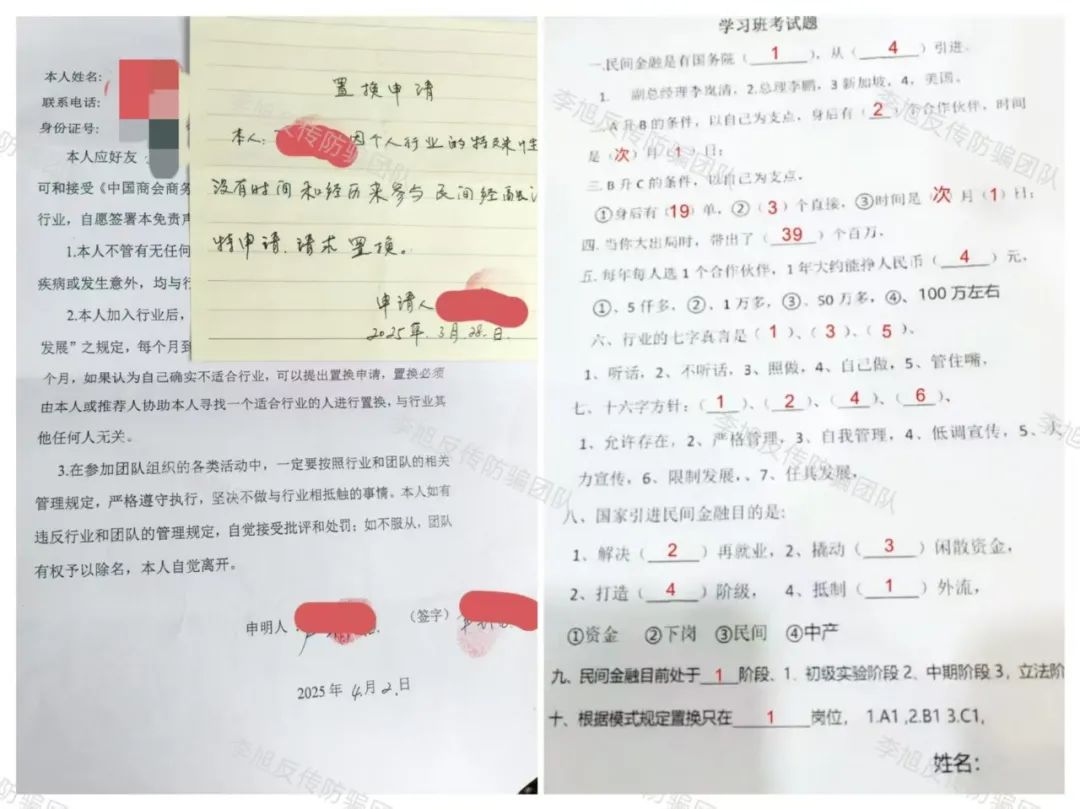 本人姓名:
联系电话:
身份证号:
本人应好友
可和接受《中国商会商务
行业，自愿签署本免责声
1.本人不管有无任何
疾病或发生意外，均与行
2.本人加入行业后，
发展"之规定，每个月到
个月，如果认为自己确实不适合行业，可以提出置换申请，置换必须
由本人或推荐人协助本人寻找一个适合行业的人进行置换，与行业其
他任何人无关。
3.在参加团队组织的各类活动中，一定要按照行业和团队的相关
管理规定，严格遵守执行，坚决不做与行业相抵触的事情。本人如有
违反行业和团队的管理规定，自觉接受批评和处罚；如不服从，团队
有权予以除名，本人自觉离开。
申明人：
（签字）
2025年 4月2日
置换申请
本人:
因个人行业的特殊性
没有时间和经历来参与民间经融
特申请.请求置换。
申请人
2025年.3月.28.日.
学习班考试题
一.民间金融是有国务院（1），从（4）引进。
1. 副总经理李岚清，2.总理李鹏，3新加坡，4，美国。
A升B的条件，以自己为支点，身后有（2）个合作伙伴，时间
是（次）月（1）日；
三.B升C的条件，以自己为支点，
①身后有（19）单，②（3）个直接，③时间是（次 月（1）日；
四.当你大出局时，带出了（39）个百万，
五.每年每人选1个合作伙伴，1年大约能挣人民币（4）元，
①、5仟多，②、1万多，③、50万多，④、100万左右
六、行业的七字真言是（1）、（3）、（5）、
1、听话，2、不听话，3、照做，4、自己做，5、管住嘴，
七、十六字方针：（1）、（2）、（4）、（6）、
1、允许存在，2、严格管理，3、自我管理，4、低调宣传，5、大
力宣传，6、限制发展，、7、任其发展，
八、国家引进民间金融目的是：
1、解决（2）再就业，2、撬动（3）闲散资金，
2、打造（4）阶级， 4、抵制（1）外流，
①资金 ②下岗 ③民间 ④中产
九、民间金融目前处于1阶段、1.初级实验阶段2、中期阶段3，立法阶
十、根据模式规定置换只在1岗位， 1.A1 ,2.B1 3.C1,
姓名：
李旭反传防骗团队